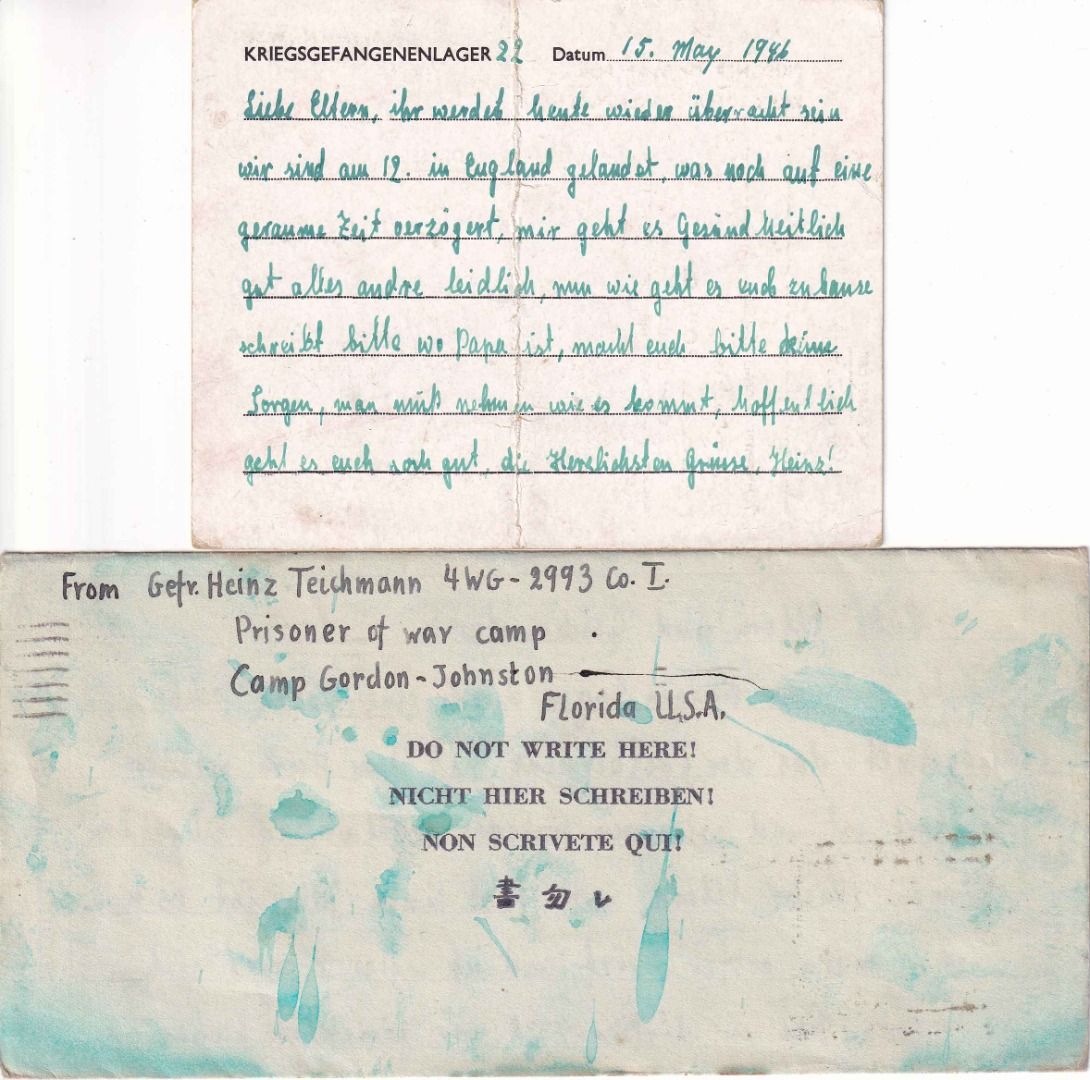 KRIEGSGEFANGENENLAGER 22 Datum 15. May 1946
Liebe Eltern, ihr werdet heute wieder überracht sein
wir sind am 12. in England gelandet, was noch auf eine
geraume Zeit verzögert, mir geht es Gesundheitlich
gut alles andre leidlich, nun wie geht es euch zuhause
schreibt bitte wo Papa ist, macht euch bitte keine
Sorgen, man muß nehmen wie es kommt, hoffentlich
geht es euch noch gut, die Herzlichsten Grüsse, Heinz!
From Gefr. Heinz Teichmann 4WG-2993 Co. I.
Prisoner of war camp .
Camp Gordon-Johnston
Florida U.S.A.
DO NOT WRITE HERE!
NICHT HIER SCHREIBEN!
NON SCRIVETE QUI!
書勿レ